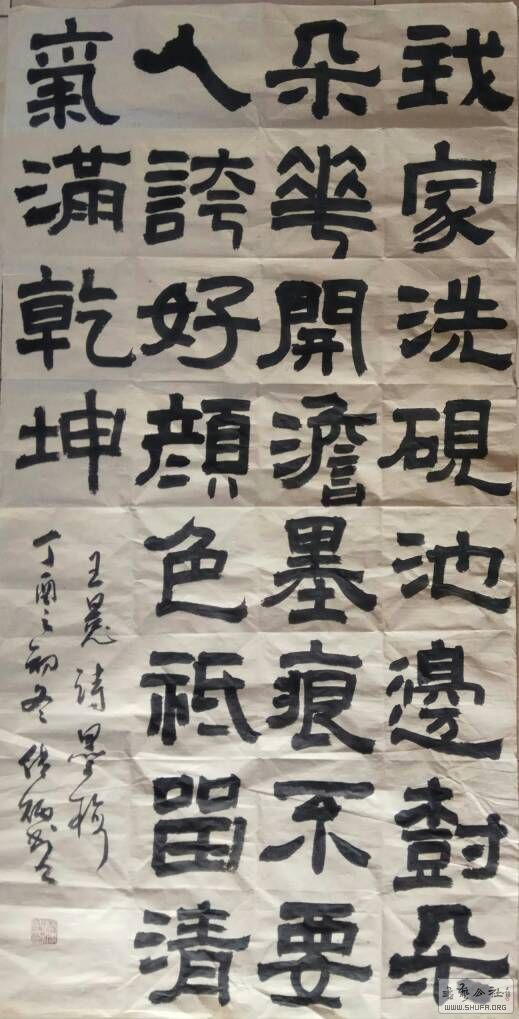 我家洗硯池邊樹朵
朵華開澹墨痕不要
人誇好顏色祗留清
氣滿乾坤
王冕詩墨梅
丁酉之初冬
書法公社
WWW.SHUFA.ORG